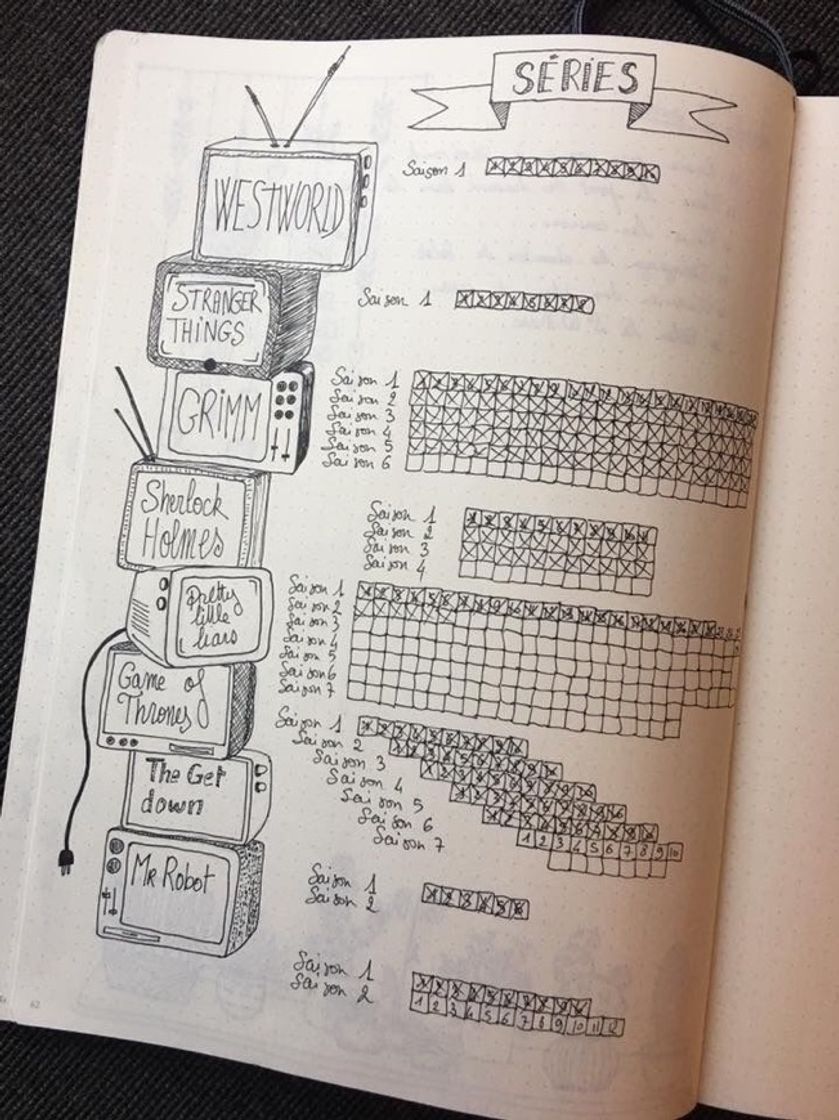 SÉRIES
WESTWORLD
Saison 1
STRANGER
THINGS
Saison 1
GRIMM
Saison 1
Saison 2
Saison 3
Saison 4
Saison 5
Saison 6
Sherlock
Holmes
Saison 1
Saison 2
Saison 3
Saison 4
Pretty
little
liars
Saison 1
Saison 2
Saison 3
Saison 4
Saison 5
Saison 6
Saison 7
Game of
Thrones
Saison 1
Saison 2
Saison 3
Saison 4
Saison 5
Saison 6
1 2 3 4 5 6 7 8 9 10
Saison 7
The Get
down
Saison 1
Saison 2
1 2 3 4 5 6
Mr Robot
Saison 1
1 2 3 4 5 6 7 8 9 10
Saison 2
1 2 3 4 5 6 7 8 9 10 11 12
62